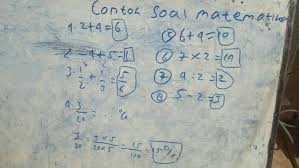 Contoh Soal matematika
1. 2+4=6
2 - 4 + 5 = 1
3. 1/2 + 1/3 = 5/6
4. 3/20 = ... %
3/20 = 3×5/20×5 = 15/100 = 15%
5 6+4=10
6 7×2=14
7 4:2=2
8 5-2=3